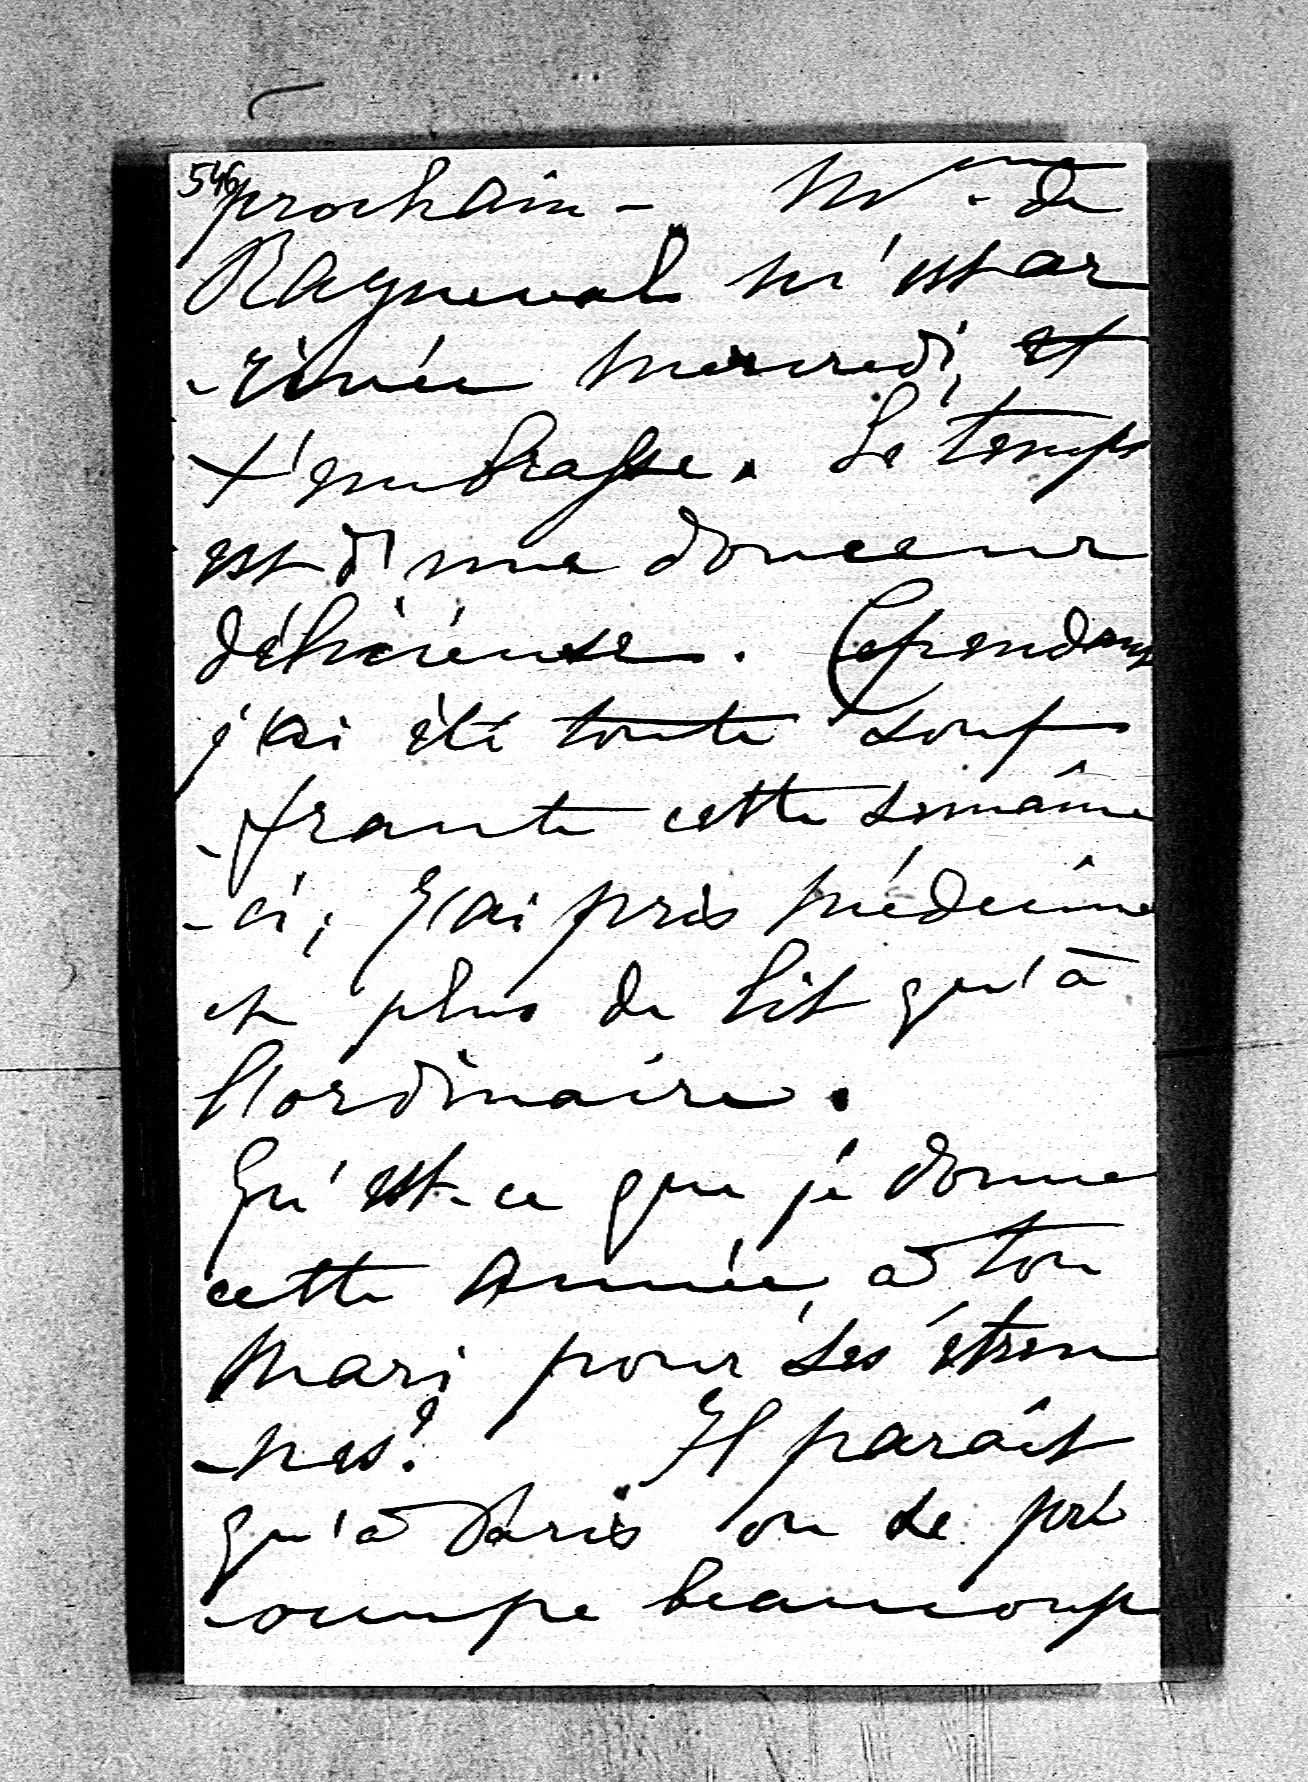 546
prochain - Mme. de
Rayneval m'est ar
-rivée mercredi, et
t'embrasse. Le temps
est d'une douceur
délicieuse. Cependant
j'ai été toute souf
-frante cette semaine
-ci; J'ai pris médecine
et plus de lit qu'à
l'ordinaire.
Qu'est-ce que je donne
cette année à ton
Mari pour ses étren
-nes? Il paraît
qu'à Paris on se pré
-occupe beaucoup